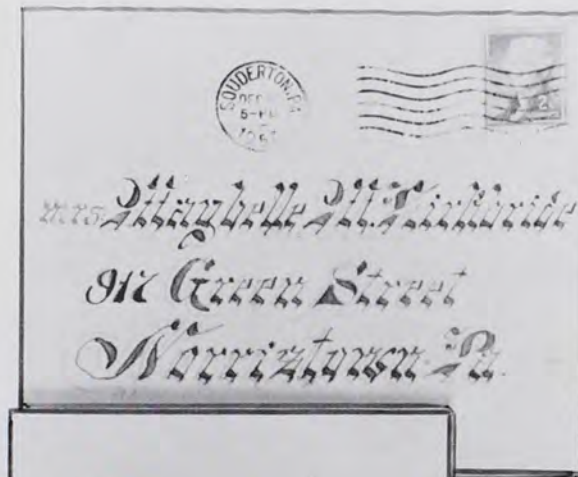 SOUDERTON, PA
DEC
5-PM
mrs. Maybelle M. Kirkbride
917 Green Street
Norristown Pa.